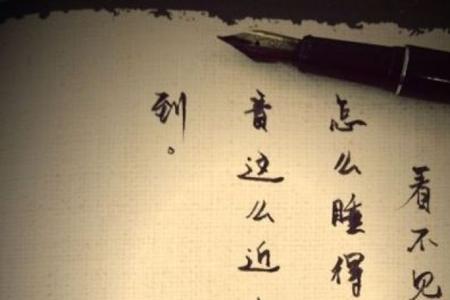 看不见
怎么睡得
音这么近
到。